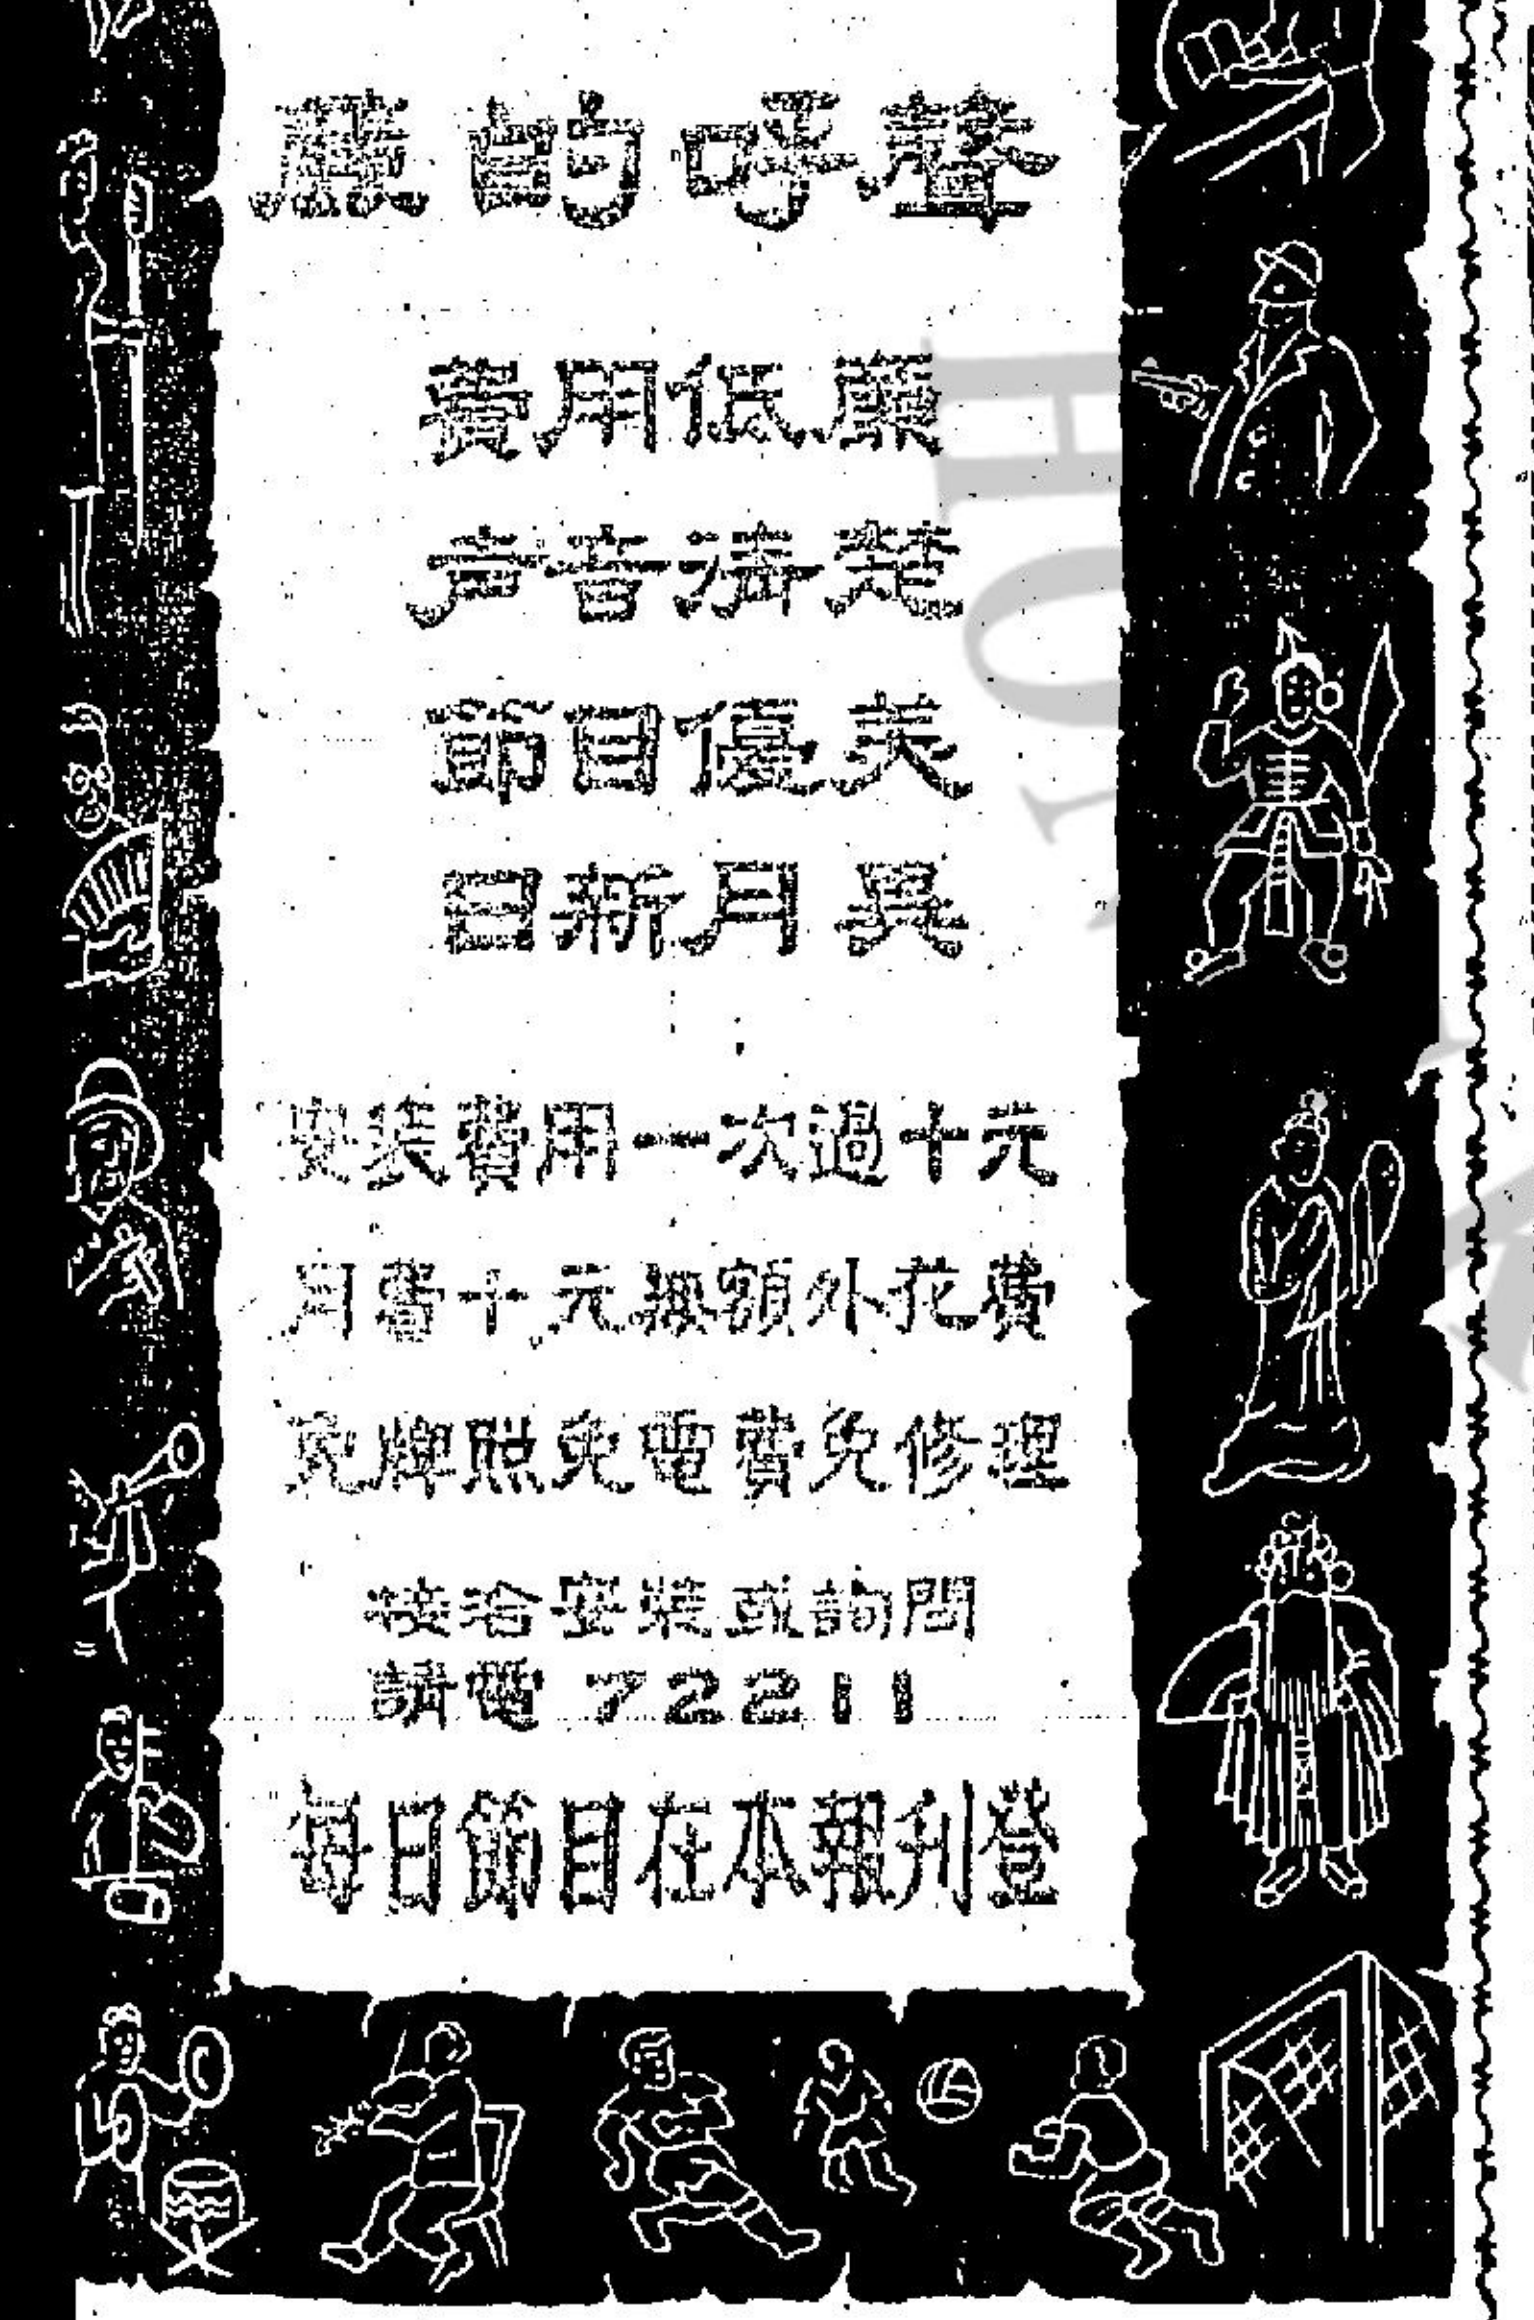 的呼聲
費用低廉
声音清楚
節目優美
日新月異
安装費用一次過十元
月費十元無額外花費
免牌照免電費免修理
接洽安裝或詢問
請電72211
每日節目在本報刊登
HO